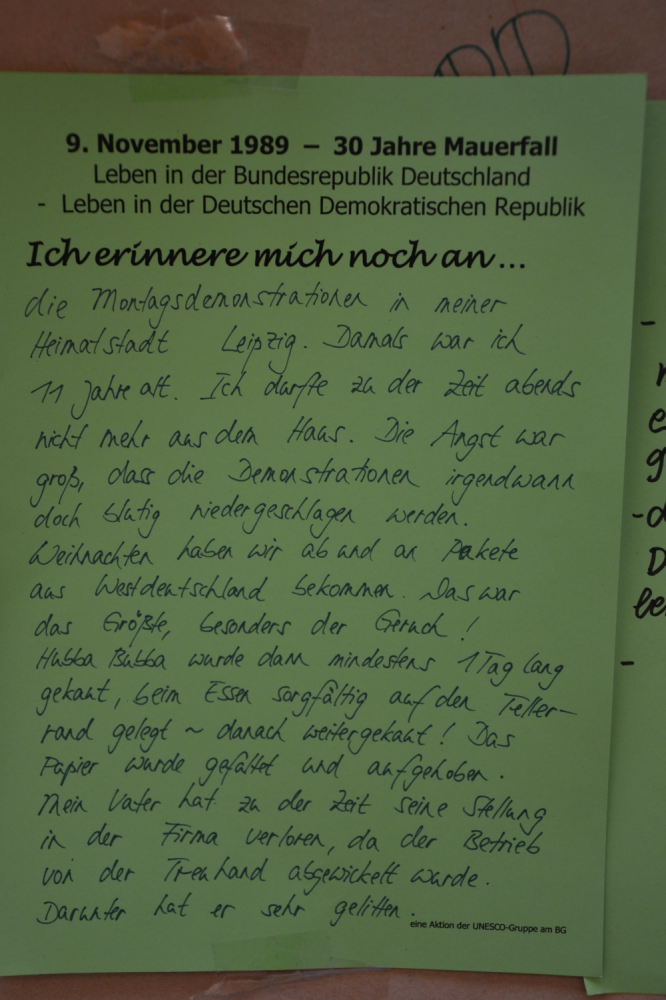 9. November 1989 – 30 Jahre Mauerfall
Leben in der Bundesrepublik Deutschland
- Leben in der Deutschen Demokratischen Republik
Ich erinnere mich noch an...
die Montagsdemonstrationen in meiner
Heimatstadt Leipzig. Damals war ich
11 Jahre alt. Ich durfte zu der Zeit abends
nicht mehr aus dem Haus. Die Angst war
groß, dass die Demonstrationen irgendwann
doch blutig niedergeschlagen werden.
Weihnachten haben wir ab und an Pakete
aus Westdeutschland bekommen. Das war
das Größte, besonders der Geruch!
Hubba Bubba wurde dann mindestens 1 Tag lang
gekaut, beim Essen sorgfältig auf den Teller-
rand gelegt ~ danach weitergekaut! Das
Papier wurde gefaltet und aufgehoben.
Mein Vater hat zu der Zeit seine Stellung
in der Firma verloren, da der Betrieb
von der Treuhand abgewickelt wurde.
Darunter hat er sehr gelitten.
eine Aktion der UNESCO-Gruppe am BG